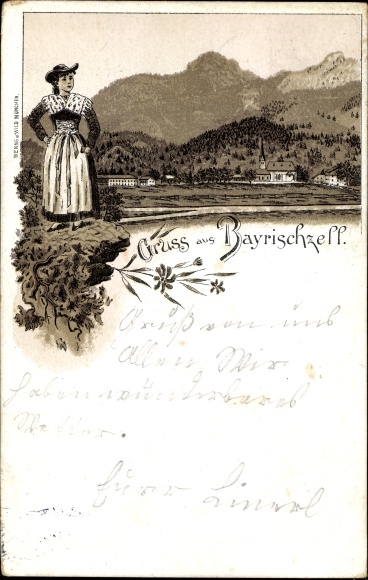 Gruss aus Bayrischzell.
Gruß von uns
Allen Wir
haben wunderbares
Wetter.
Eurer Linerl